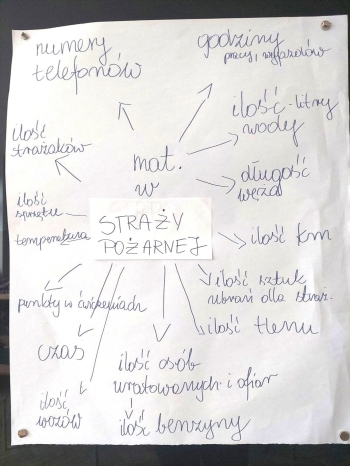 numery
telefonów
godziny
pracy, wyjazdów
ilość
strażaków
mat.
w
ilość - litry
wody
długość
węża
ilość
sprzętu
temperatura
STRAŻY
POŻARNEJ
ilość km
punkty w ćwiczeniach
ilość sztuk
ubrań dla straż.
ilość tlenu
czas
ilość osób
uratowanych i ofiar
ilość
wozów
ilość benzyny